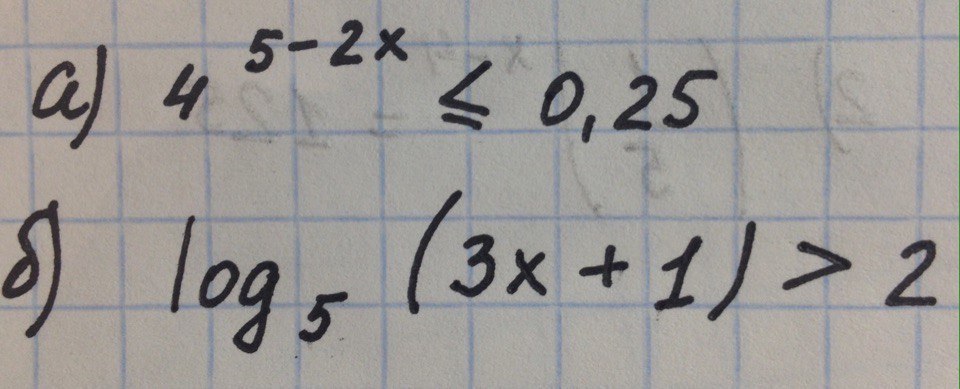 а) 4^{5-2x} ≤ 0,25
б) log_5 (3x + 1) > 2